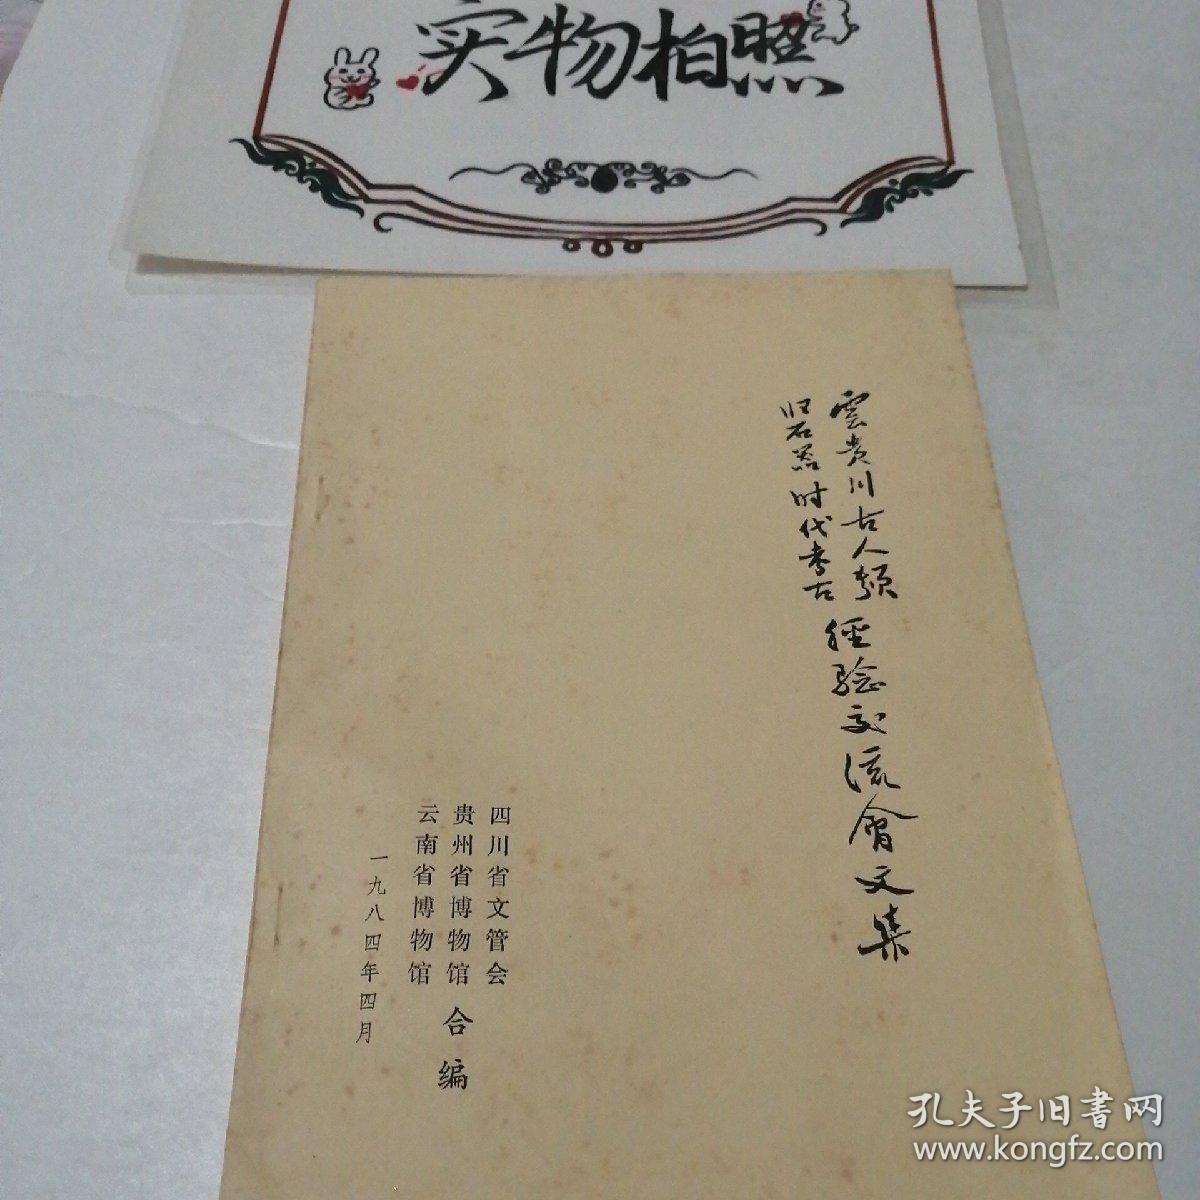 实物柏照
雲贵川古人類
旧石器时代考古
經验交流會文集
四川省文管会
贵州省博物馆
云南省博物馆
合编
一九八四年四月
孔夫子旧書网
www.kongfz.com